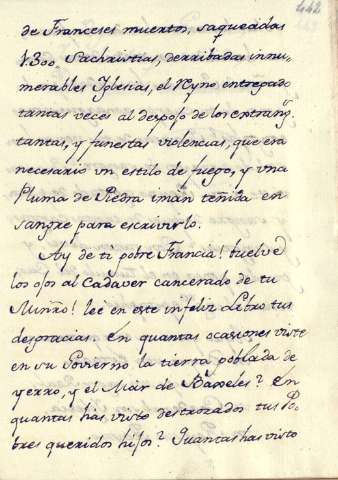 442
de Franceses muertos, saqueadas
1300. Sachristias, derribadas innu-
merables Yglesias, el Reyno entregado
tantas veces al despojo de los extrang.s
tantas, y funestas violencias, que era
necesario un estilo de fuego, y una
Pluma de Piedra iman teñida en
sangre para escrivirlo.
Ay de ti pobre Francia! buelve
los ojos al Cadaver cancerado de tu
Minro! lee en este infeliz Letro tus
desgracias. En quantas ocasiones viste
en su Govierno la tierra poblada de
yerro, y el Mar de Baxeles? En
quantas has visto destrozados tus Po-
bres queridos hijos? Quantas has visto